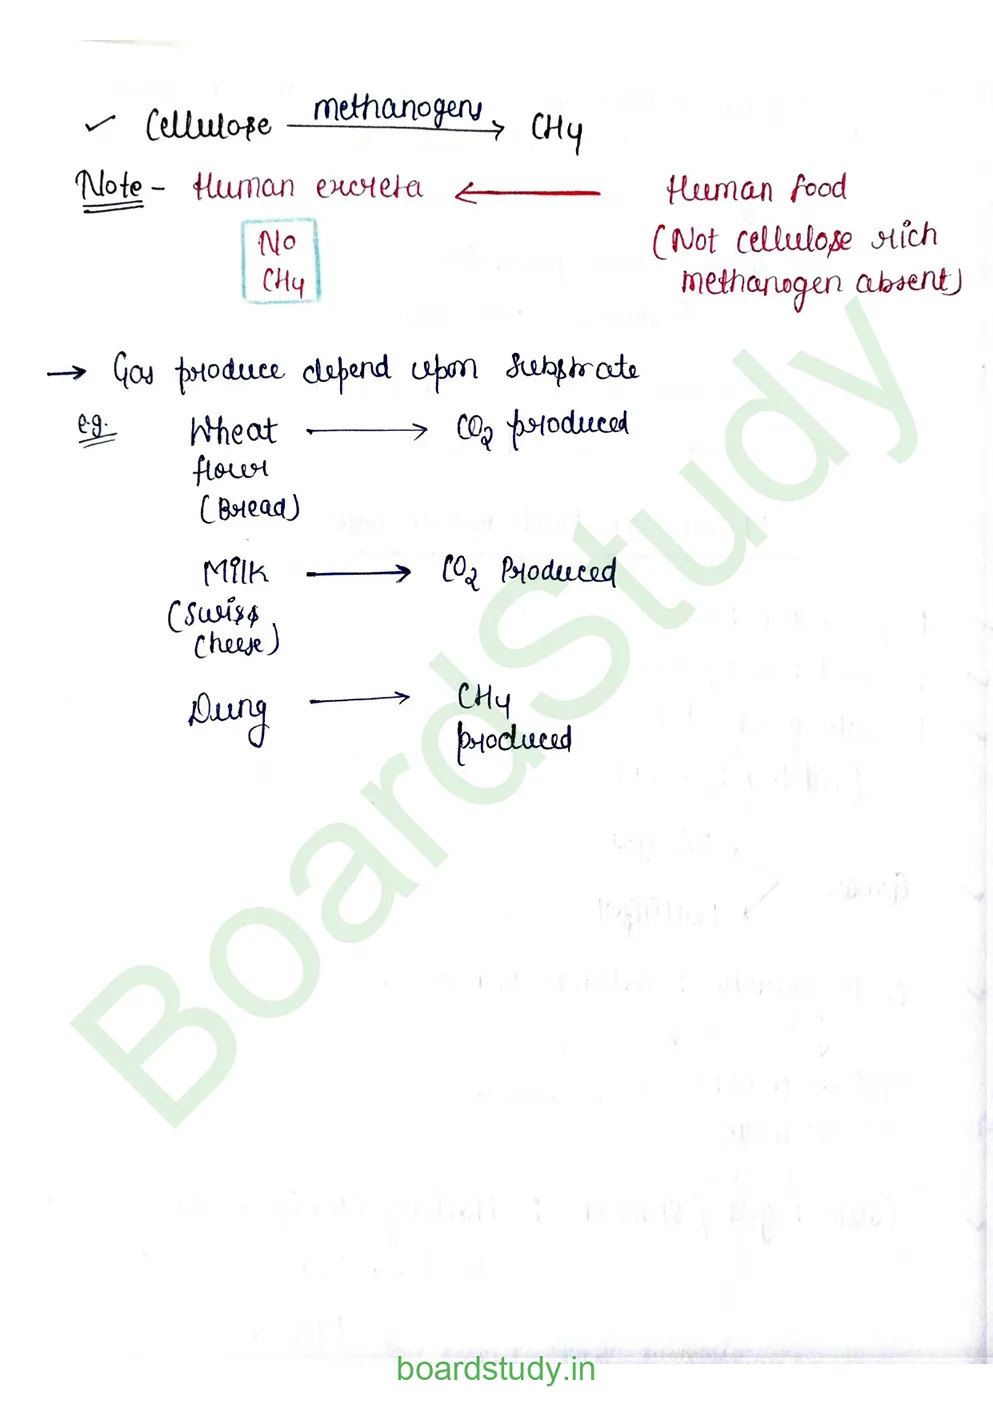 ✓ Cellulose methanogens → CH4
Note - Human excreta ← Human food
No (Not cellulose rich
CH4 methanogen absent)
→ Gas produce depend upon substrate
e.g. Wheat → CO2 produced
flour
(Bread)
Milk → CO2 Produced
(Swiss
Cheese)
Dung → CH4
produced
BoardStudy
boardstudy.in